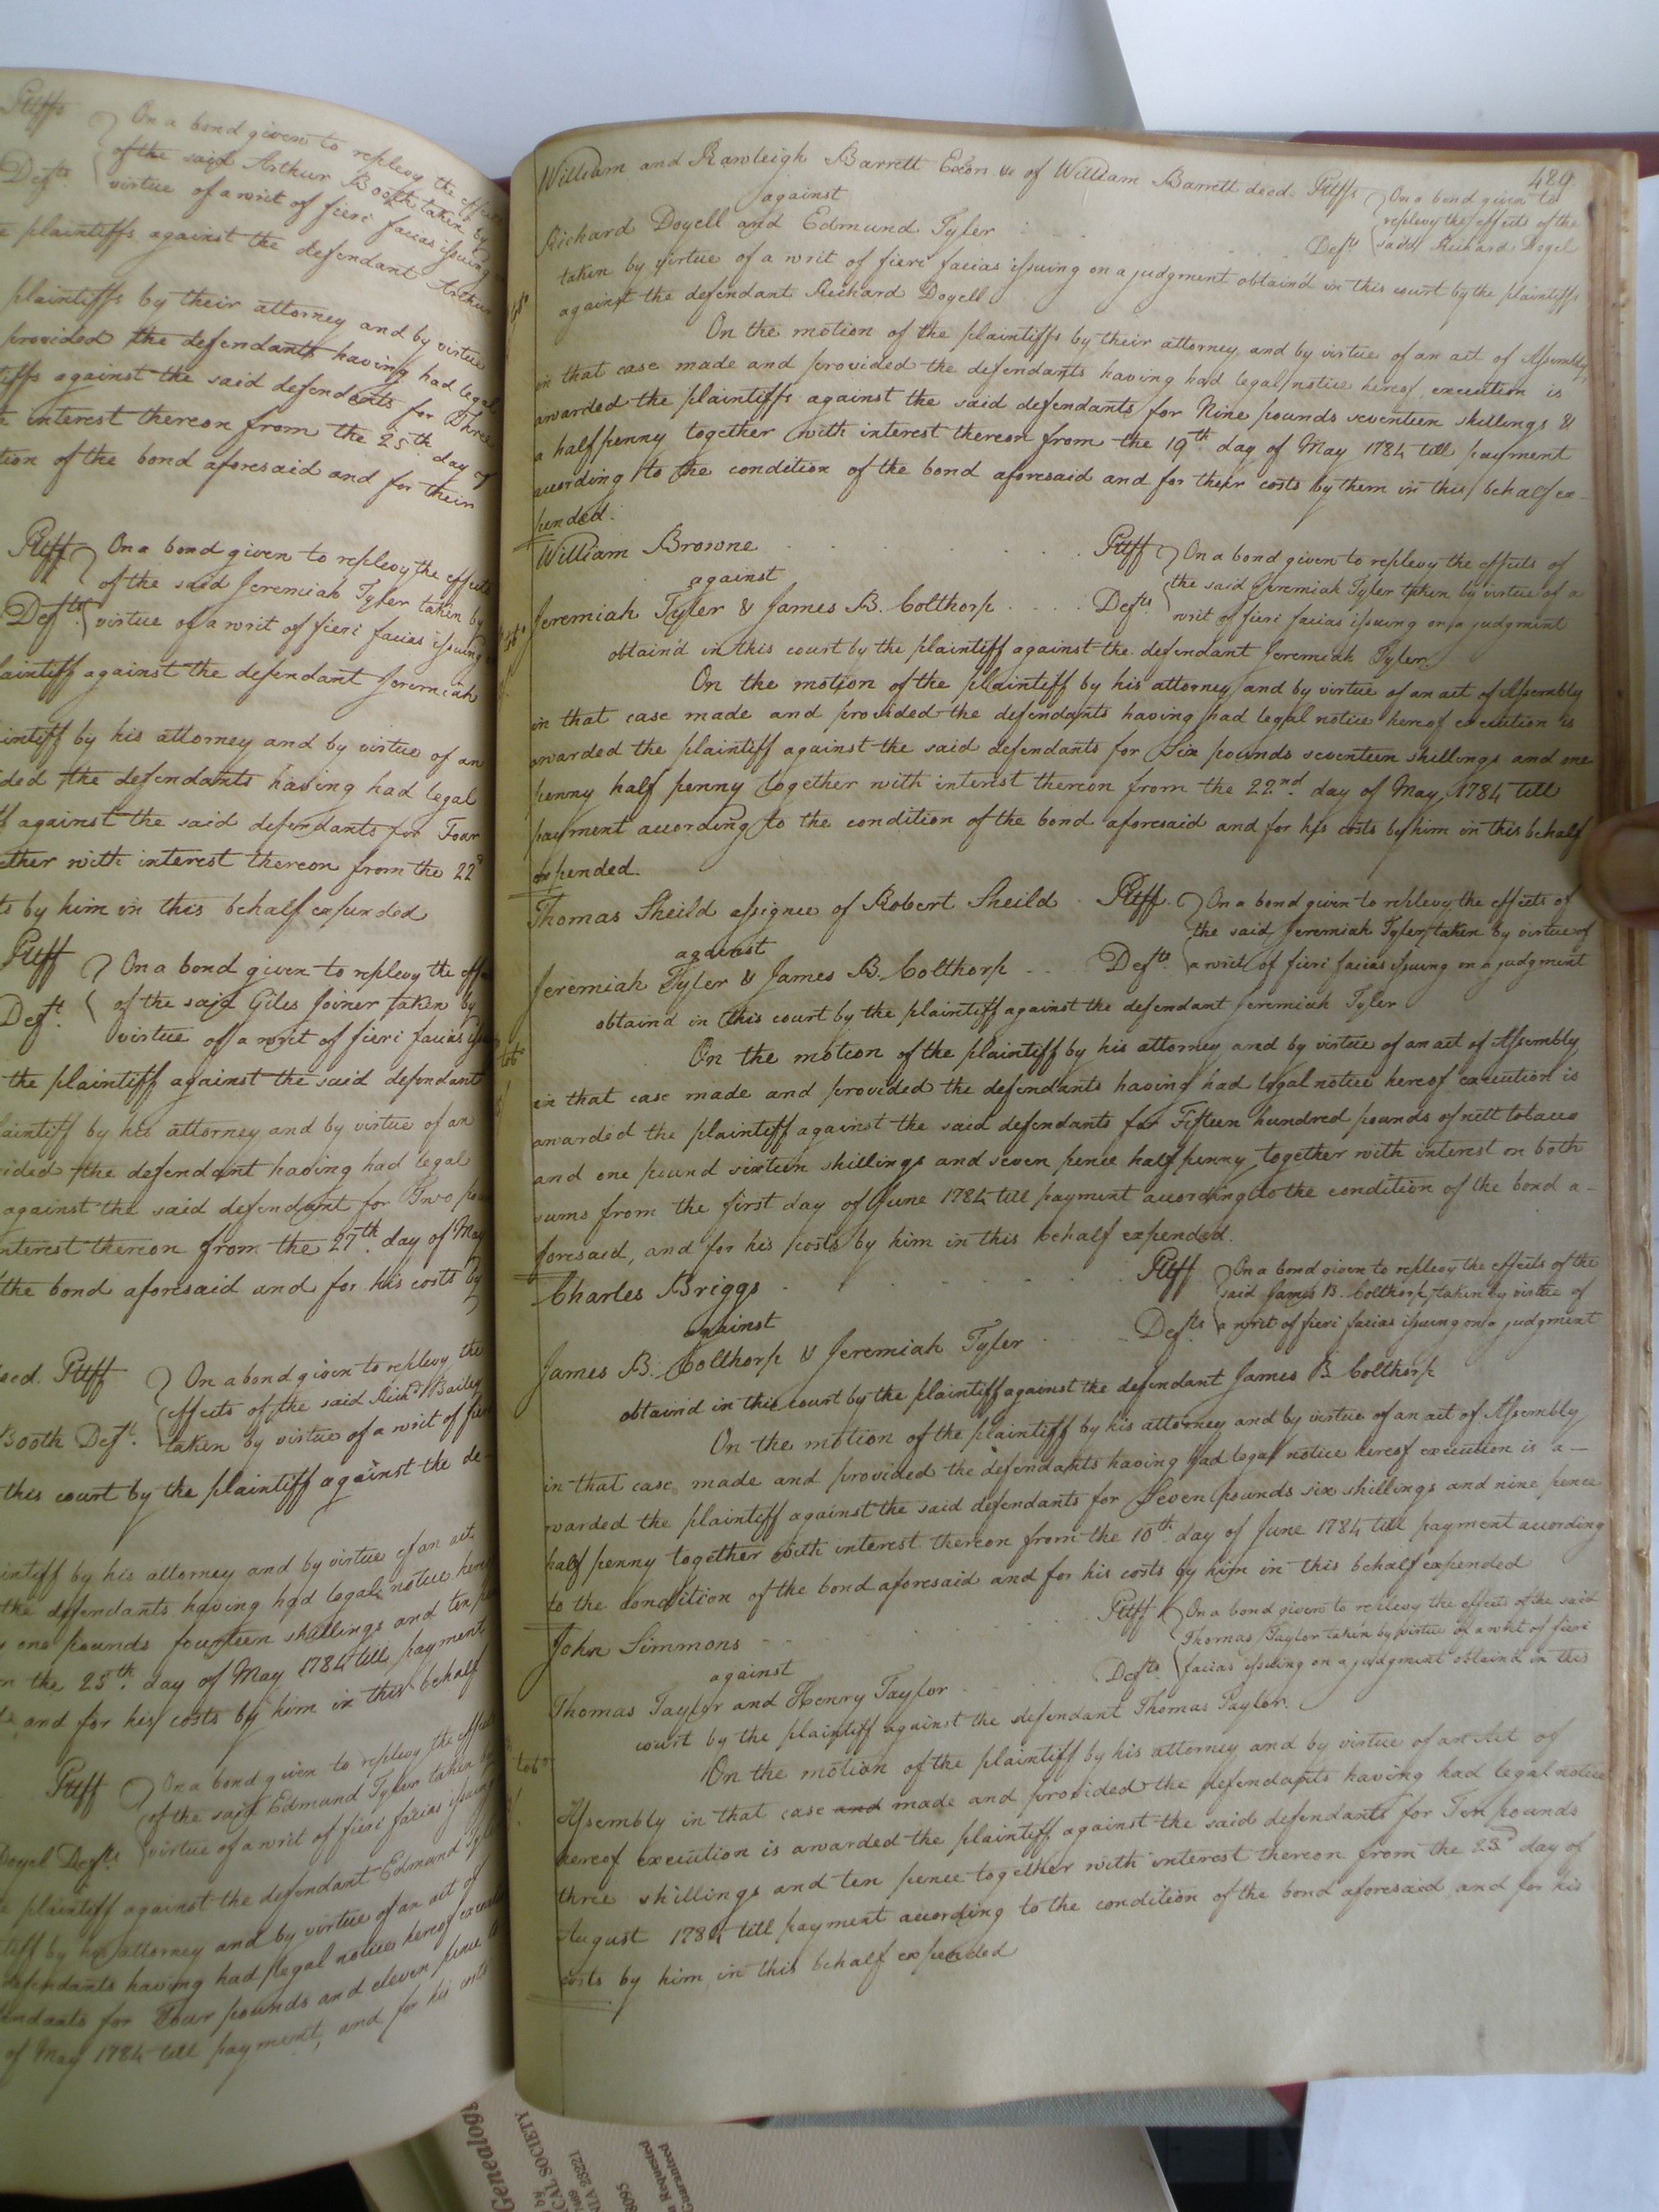 Pltffs
On a bond given to replevy the effects
of the said Arthur Booth taken by
Defts
virtue of a writ of fieri facias issuing
plaintiffs against the defendant Arthur
plaintiffs by their attorney and by virtue
provided the defendants having had legal
tiffs against the said defendants for Three
interest thereon from the 25th day of
tion of the bond aforesaid and for their
Pltff
On a bond given to replevy the effects
of the said Jeremiah Tyler taken by
Defts
virtue of a writ of fieri facias issuing
laintiff against the defendant Jeremiah
intiff by his attorney and by virtue of an
ded the defendants having had legal
against the said defendants for Four
ether with interest thereon from the 22d
ts by him in this behalf expended
Pltff
On a bond given to replevy the effe
of the said Giles Joiner taken by
Deft.
virtue of a writ of fieri facias iss
the plaintiff against the said defendant
laintiff by his attorney and by virtue of an
vided the defendant having had legal
against the said defendant for Two po
nterest thereon from the 27th day of May
the bond aforesaid and for his costs by
eed. Pltff
On a bond given to replevy the
effects of the said Richd Bailey
Booth Deft.
taken by virtue of a writ of fier
this court by the plaintiff against the de-
intiff by his attorney and by virtue of an act
the defendants having had legal notice here
one pounds fourteen shillings and ten pe
n the 25th day of May 1784 till payment
and for his costs by him in this behalf
Pltff
On a bond given to replevy the effects
of the said Edmund Tyler taken by
Doyel Defts
virtue of a writ of fieri facias issuing
e plaintiff against the defendant Edmund Tyle
tiff by his attorney and by virtue of an act of
defendants having had legal notice hereof execut
endants for Four pounds and eleven pence to
of May 1784 till payment, and for his costs
489
William and Rawleigh Barrett Exors &c of William Barrett decd. Pltffs
On a bond given to
against
replevy the effects of the
Richard Doyell and Edmund Tyler Defts
said Richard Dogel
taken by virtue of a writ of fieri facias issuing on a judgment obtain'd in this court by the plaintiffs
against the defendant Richard Doyell
On the motion of the plaintiffs by their attorney and by virtue of an act of Assembly
in that case made and provided the defendants having had legal notice hereof execution is
awarded the plaintiffs against the said defendants for Nine pounds seventeen shillings &
a halfpenny together with interest thereon from the 19th day of May 1784 till payment
according to the condition of the bond aforesaid and for their costs by them in this behalf ex-
pended.
William Browne Pltff
On a bond given to replevy the effects of
against
the said Jeremiah Tyler taken by virtue of a
Jeremiah Tyler & James B. Colthorp Defts
writ of fieri facias issuing on a judgment
obtain'd in this court by the plaintiff against the defendant Jeremiah Tyler
On the motion of the plaintiff by his attorney and by virtue of an act of Assembly
in that case made and provided the defendants having had legal notice hereof execution is
awarded the plaintiff against the said defendants for Six pounds seventeen shillings and one
penny half penny together with interest thereon from the 22nd day of May 1784 till
payment according to the condition of the bond aforesaid and for his costs by him in this behalf
expended.
Thomas Sheild assignee of Robert Sheild Pltff.
On a bond given to replevy the effects of
against
the said Jeremiah Tyler taken by virtue of
Jeremiah Tyler & James B. Colthorp Defts
a writ of fieri facias issuing on a judgment
obtaind in this court by the plaintiff against the defendant Jeremiah Tyler
On the motion of the plaintiff by his attorney and by virtue of an act of Assembly
in that case made and provided the defendants having had legal notice hereof execution is
awarded the plaintiff against the said defendants for Fifteen hundred pounds of nett tobacco
and one pound sixteen shillings and seven pence half penny together with interest on both
sums from the first day of June 1784 till payment according to the condition of the bond a-
foresaid, and for his costs by him in this behalf expended.
Charles Briggs Pltff
On a bond given to replevy the effects of the
against
said James B. Colthorp taken by virtue of
James B. Colthorp & Jeremiah Tyler Defts
a writ of fieri facias issuing on a judgment
obtaind in this court by the plaintiff against the defendant James B Colthorp
On the motion of the plaintiff by his attorney and by virtue of an act of Assembly
in that case made and provided the defendants having had legal notice hereof execution is a-
warded the plaintiff against the said defendants for Seven pounds six shillings and nine pence
half penny together with interest thereon from the 10th day of June 1784 till payment according
to the condition of the bond aforesaid and for his costs by him in this behalf expended
John Simmons Pltff
On a bond given to replevy the effects of the said
against
Thomas Taylor taken by virtue of a writ of fieri
Thomas Taylor and Henry Taylor Defts
facias issuing on a judgment obtaind in this
court by the plaintiff against the defendant Thomas Taylor.
On the motion of the plaintiff by his attorney and by virtue of an Act of
Assembly in that case and made and provided the defendants having had legal notice
hereof execution is awarded the plaintiff against the said defendants for Ten pounds
three shillings and ten pence together with interest thereon from the 23d day of
August 1784 till payment according to the condition of the bond aforesaid and for his
costs by him in this behalf expended
Genealog
CAL SOCIETY
a Requested
Guaranteed